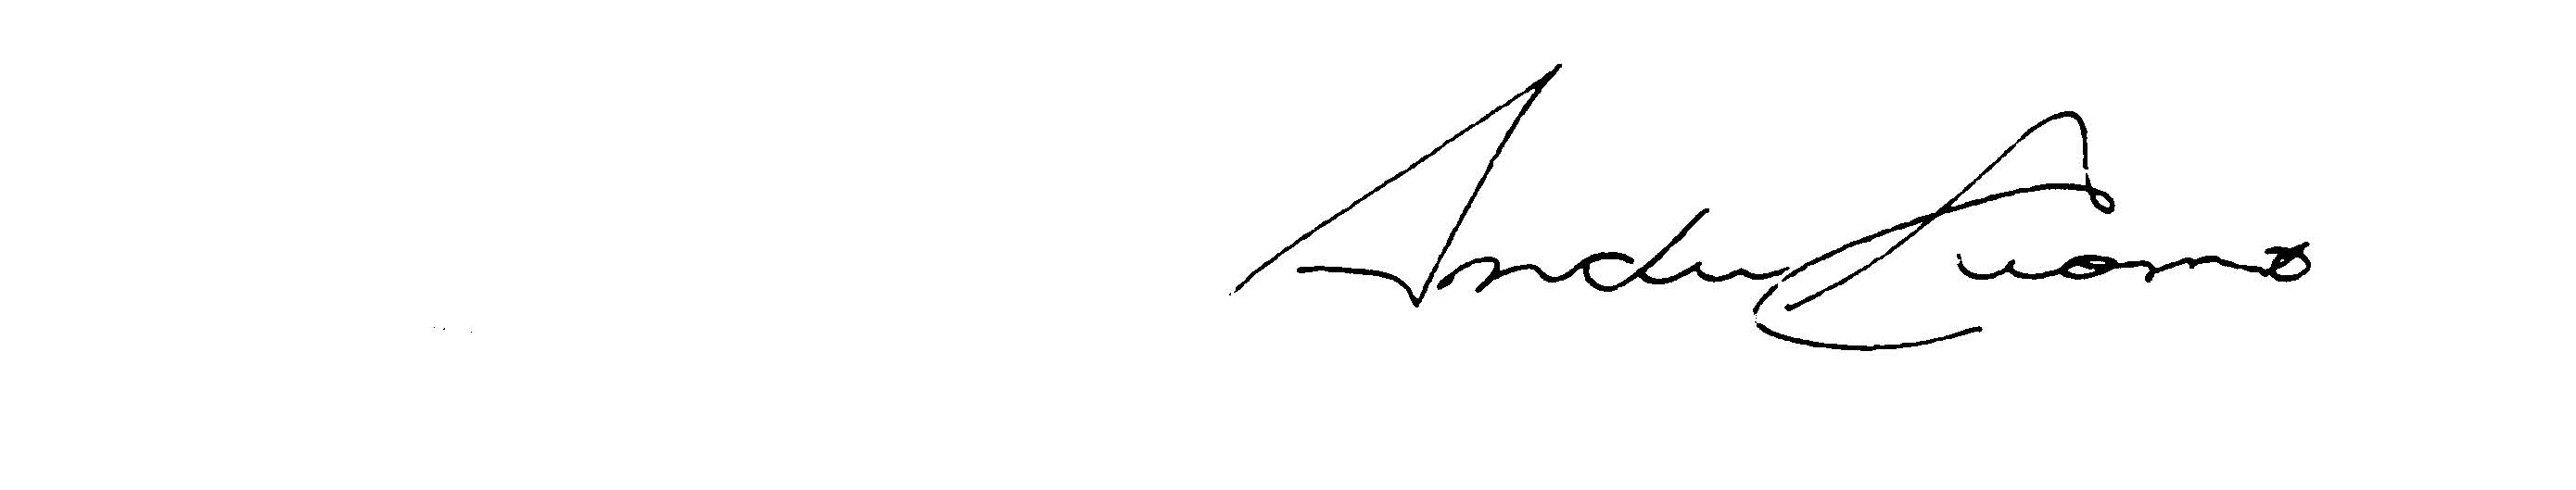 Andrew Cuomo